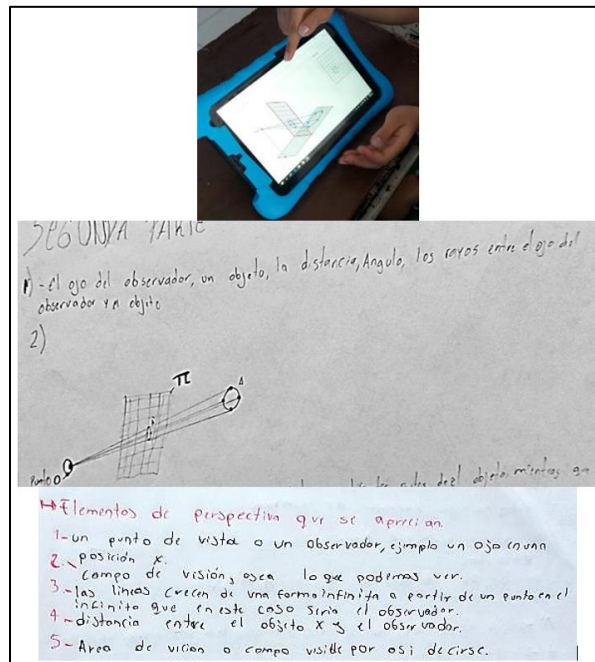 SEGUNDA PARTE
1) - el ojo del observador, un objeto, la distancia, Angulo, los rayos entre el ojo del
observador y el objeto
2)
π
A
Punto O
del objeto, mientras que
Elementos de perspectiva que se aprecian.
1- un punto de vista o un observador, ejemplo un ojo en una
posición x.
2. campo de visión, osea lo que podemos ver.
3- las lineas crecen de una forma infinita a partir de un punto en el
infinito que en este caso seria el observador.
4- distancia entre el objeto x y el observador.
5- Area de vicion o campo visible por asi decirse.